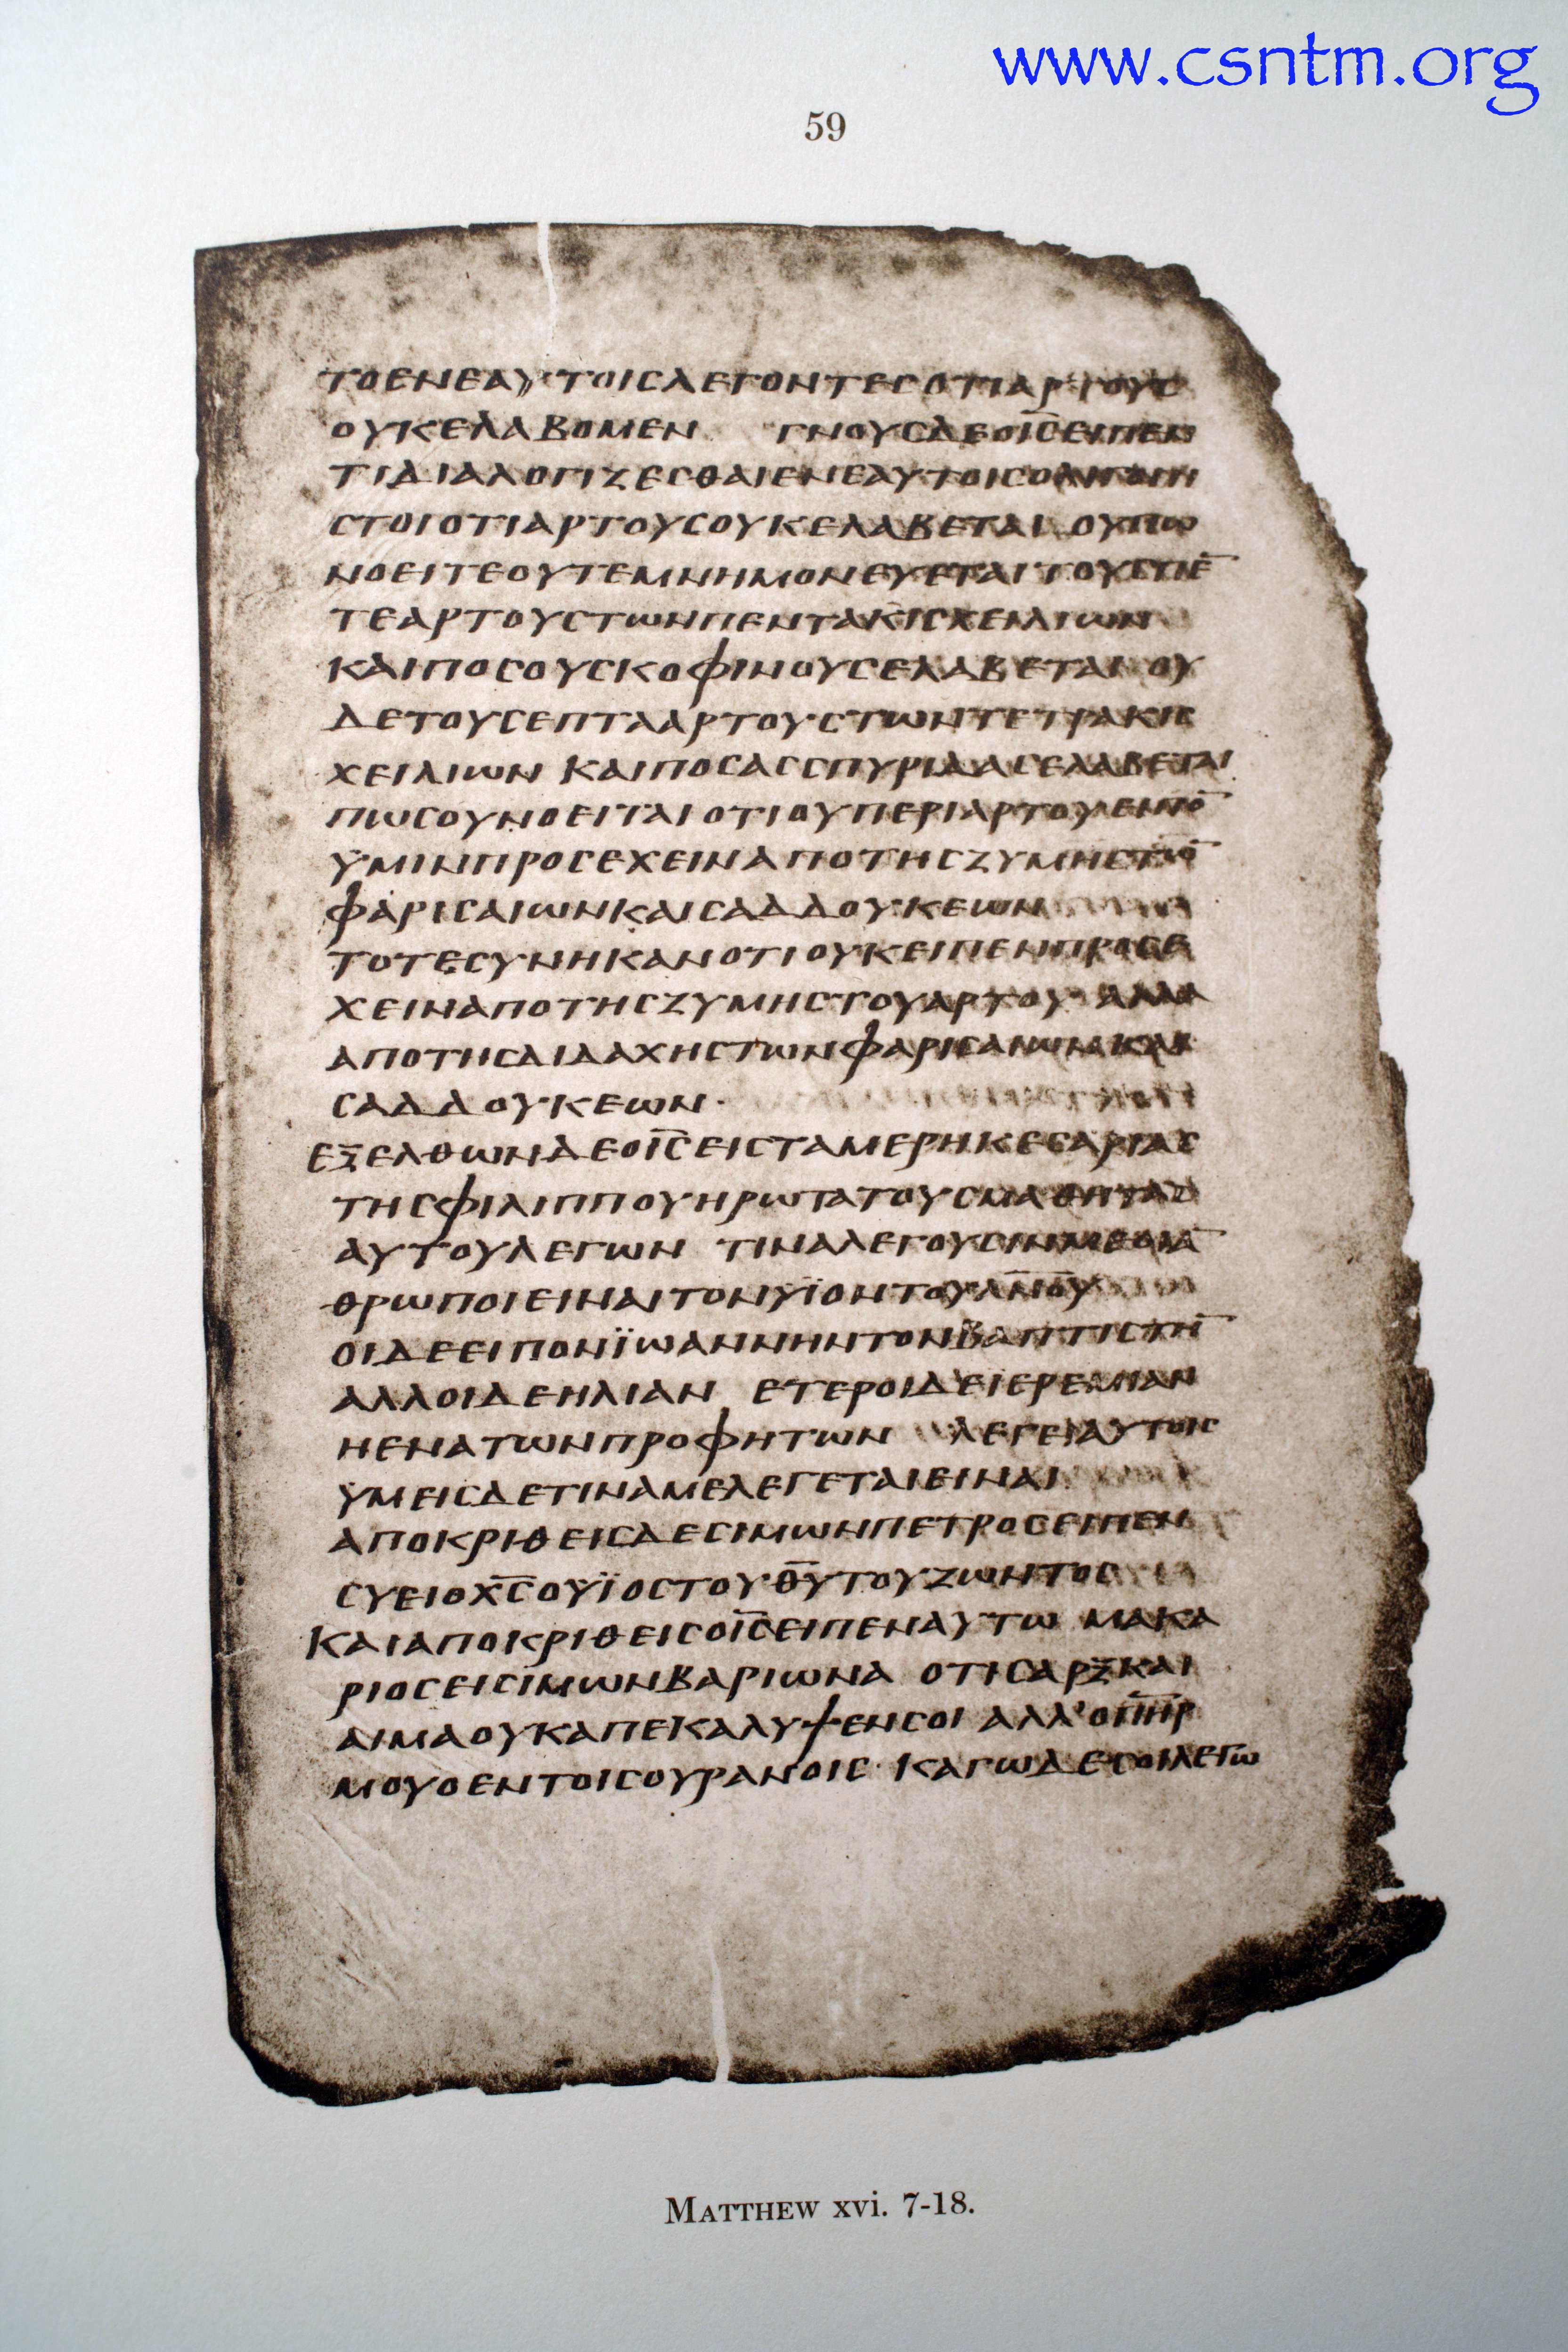 www.csntm.org
59
ΤΟΕΝΕΑΥΤΟΙCΛΕΓΟΝΤΕCΟΤΙΑΡΤΟΥC
ΟΥΚΕΛΑΒΟΜΕΝ ΓΝΟΥCΔΕΟΙ̅C̅ΕΙΠΕΝ
ΤΙΔΙΑΛΟΓΙΖΕCΘΑΙΕΝΕΑΥΤΟΙCΟΛΙΓΟΠΙ
CΤΟΙΟΤΙΑΡΤΟΥCΟΥΚΕΛΑΒΕΤΑΙ ΟΥΠΩ
ΝΟΕΙΤΕΟΥΤΕΜΝΗΜΟΝΕΥΕΤΑΙΤΟΥCΠΕ̅
ΤΕΑΡΤΟΥCΤΩΝΠΕΝΤΑΚΙCΧΕΙΛΙΩΝ
ΚΑΙΠΟCΟΥCΚΟΦΙΝΟΥCΕΛΑΒΕΤΑΙ ΟΥ
ΔΕΤΟΥCΕΠΤΑΑΡΤΟΥCΤΩΝΤΕΤΡΑΚΙC
ΧΕΙΛΙΩΝ ΚΑΙΠΟCΑCCΠΥΡΙΔΑCΕΛΑΒΕΤΑΙ
ΠΩCΟΥΝΟΕΙΤΑΙΟΤΙΟΥΠΕΡΙΑΡΤΟΥΕΙΠΟ̅
ΫΜΙΝΠΡΟCΕΧΕΙΝΑΠΟΤΗCΖΥΜΗCΤΩ̅
ΦΑΡΙCΑΙΩΝΚΑΙCΑΔΔΟΥΚΕΩΝ
ΤΟΤΕCΥΝΗΚΑΝΟΤΙΟΥΚΕΙΠΕΝΠΡΟCΕ
ΧΕΙΝΑΠΟΤΗCΖΥΜΗCΤΟΥΑΡΤΟΥ ΑΛΛΑ
ΑΠΟΤΗCΔΙΔΑΧΗCΤΩΝΦΑΡΙCΑΙΩΝΚΑΙ
CΑΔΔΟΥΚΕΩΝ·
ΕΞΕΛΘΩΝΔΕΟΙ̅C̅ΕΙCΤΑΜΕΡΗΚΕCΑΡΙΑC
ΤΗCΦΙΛΙΠΠΟΥΗΡΩΤΑΤΟΥCΜΑΘΗΤΑC
ΑΥΤΟΥΛΕΓΩΝ ΤΙΝΑΛΕΓΟΥCΙΝΜΕΟΙΑ̅
ΘΡΩΠΟΙΕΙΝΑΙΤΟΝΫΪΟΝΤΟΥΑ̅Ν̅Ο̅Υ̅
ΟΙΔΕΕΙΠΟΝΪΩΑΝΝΗΝΤΟΝΒΑΠΤΙCΤΗ̅
ΑΛΛΟΙΔΕΗΛΙΑΝ ΕΤΕΡΟΙΔΕΙΕΡΕΜΙΑΝ
ΗΕΝΑΤΩΝΠΡΟΦΗΤΩΝ ΛΕΓΕΙΑΥΤΟΙC
ΫΜΕΙCΔΕΤΙΝΑΜΕΛΕΓΕΤΑΙΕΙΝΑΙ
ΑΠΟΚΡΙΘΕΙCΔΕCΙΜΩΝΠΕΤΡΟCΕΙΠΕΝ
CΥΕΙΟΧ̅C̅ΟΥΪΟCΤΟΥΘ̅Υ̅ΤΟΥΖΩΝΤΟC
ΚΑΙΑΠΟΚΡΙΘΕΙCΟΙ̅C̅ΕΙΠΕΝΑΥΤΩ ΜΑΚΑ
ΡΙΟCΕΙCΙΜΩΝΒΑΡΙΩΝΑ ΟΤΙCΑΡΞΚΑΙ
ΑΙΜΑΟΥΚΑΠΕΚΑΛΥΨΕΝCΟΙ ΑΛΛ'ΟΠ̅Η̅Ρ̅
ΜΟΥΟΕΝΤΟΙCΟΥΡΑΝΟΙC· ΚΑΓΩΔΕCΟΙΛΕΓΩ
MATTHEW xvi. 7-18.